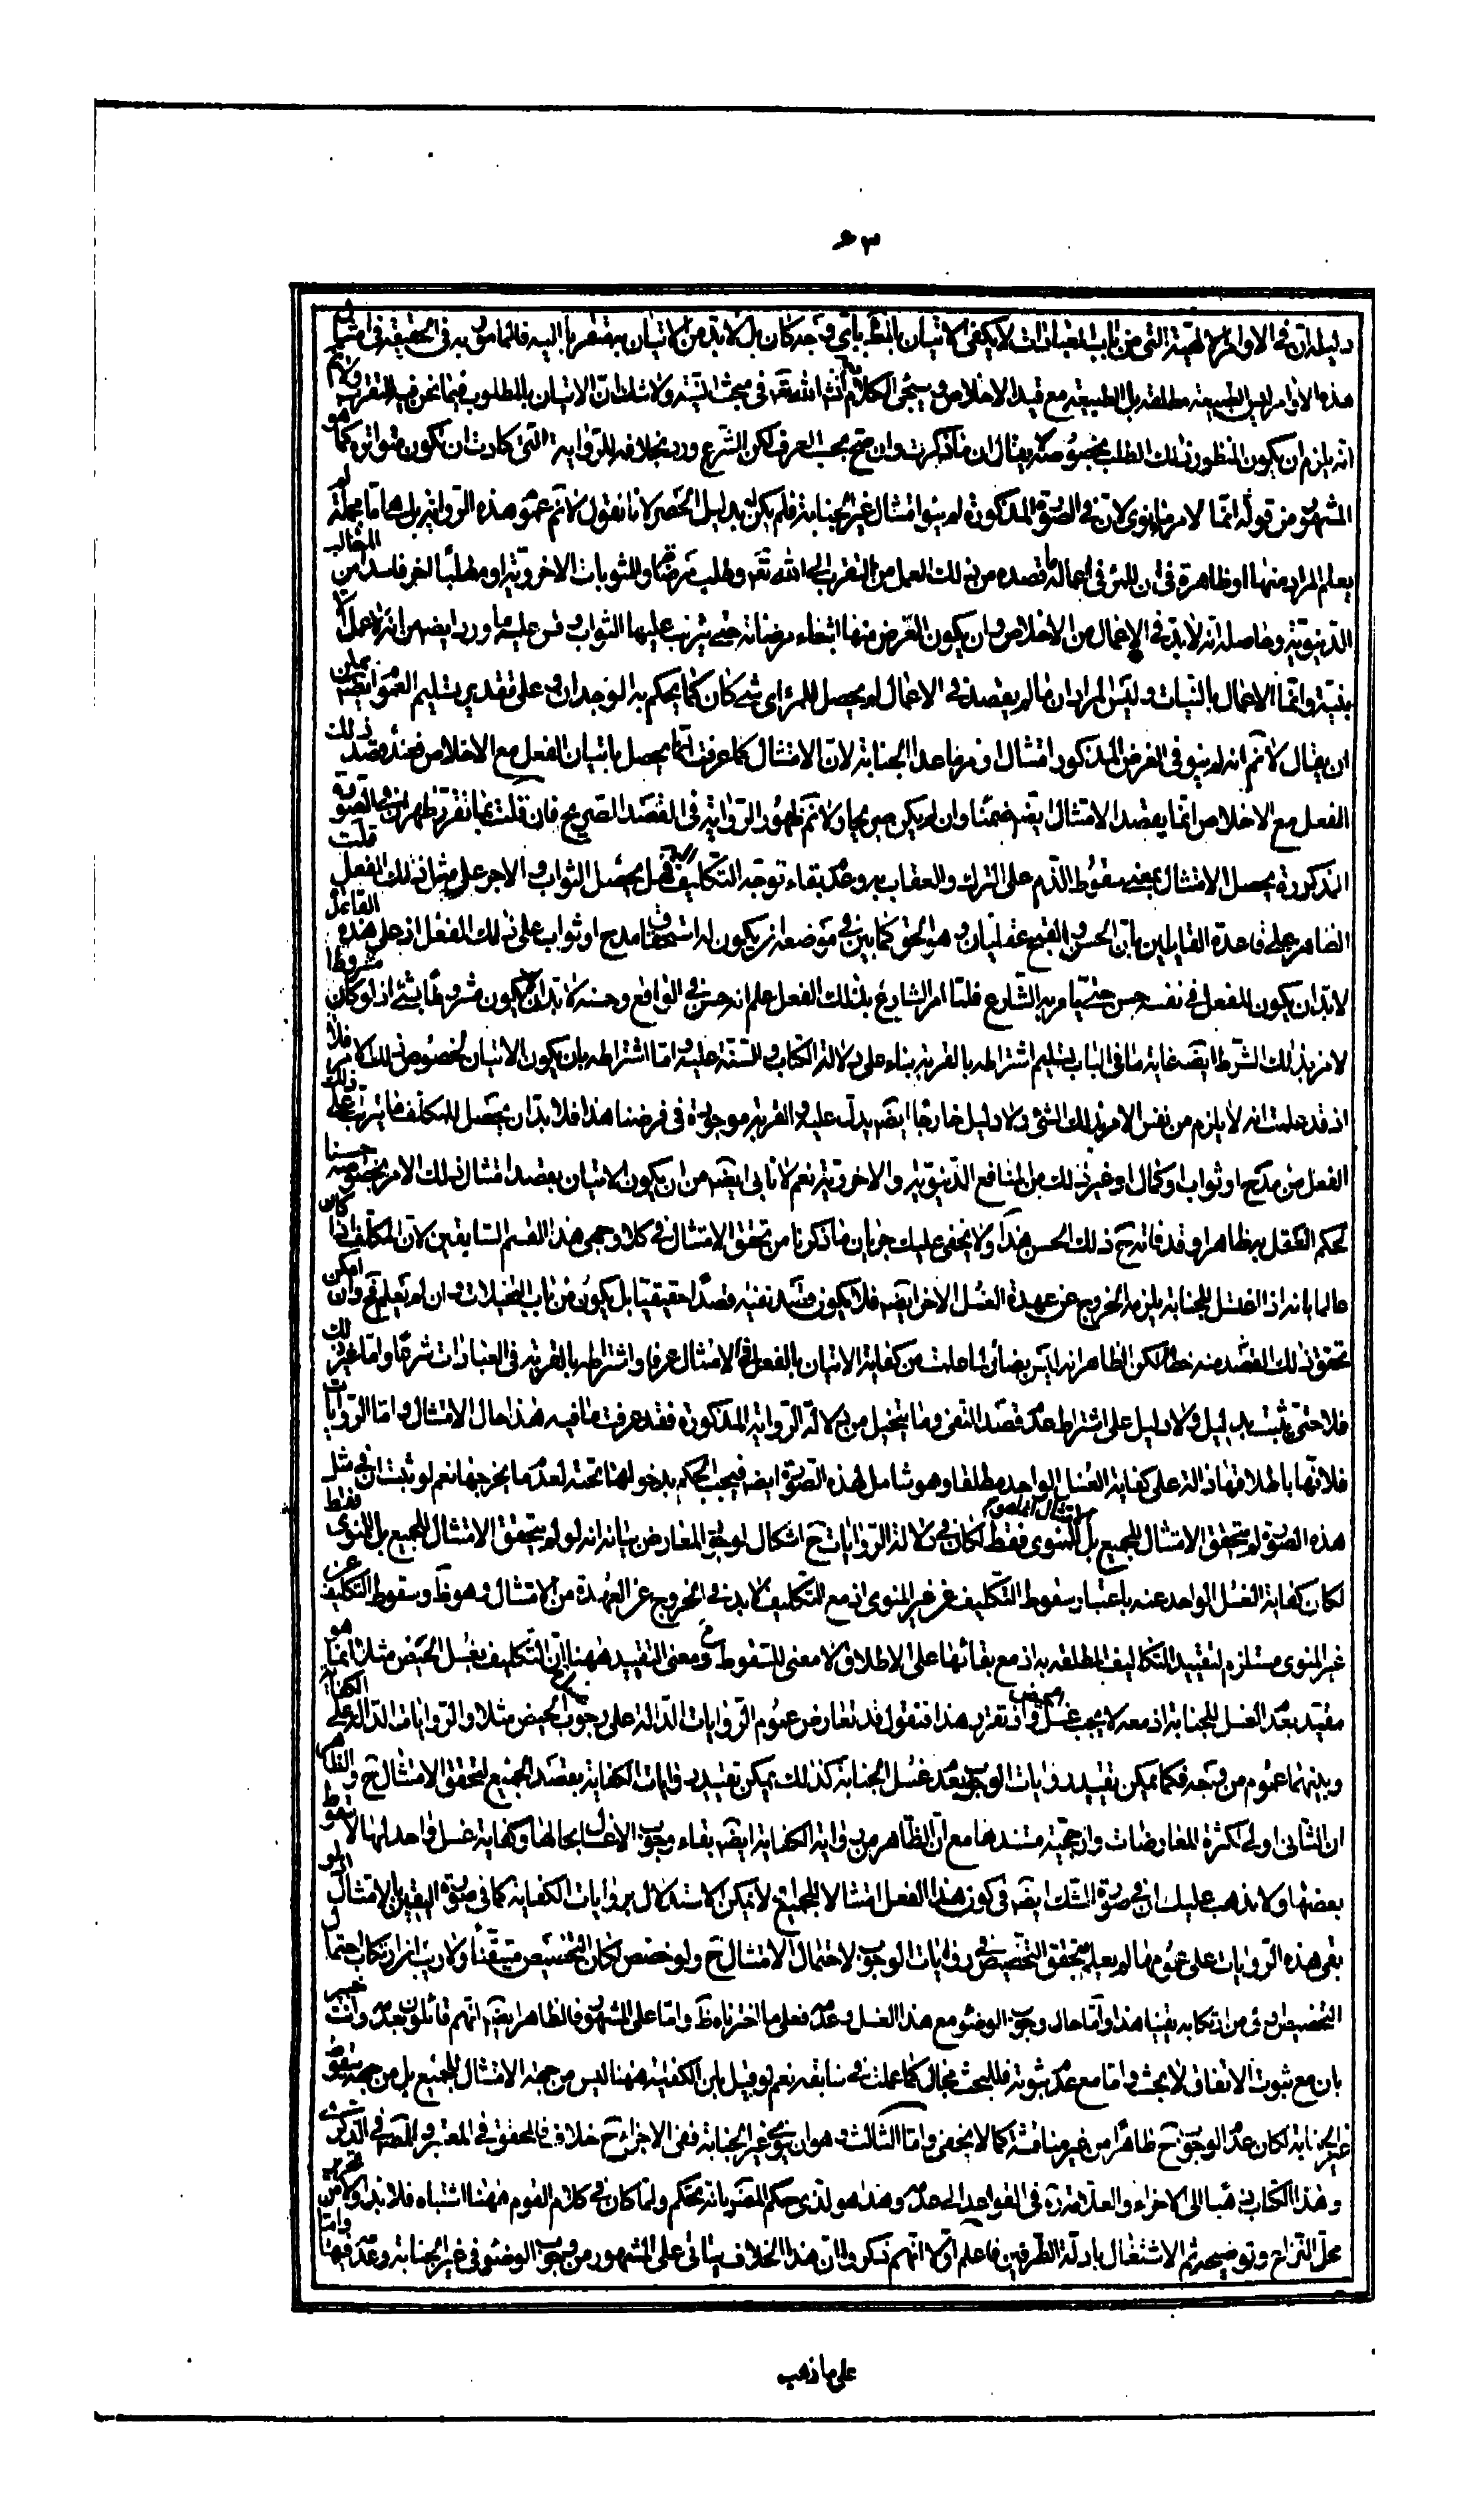 دليله ان في الاوامر الالهية التي من باب العبادات لا يكفي الاتيان بالمط باي وجه كان بل لا بد من الاتيان به متقربا اليه فالمامور به في الحقيقة في امثال
هذه الاوامر ليس الطبيعة مطلقة بل الطبيعة مع قيد الاخلاص وسيجئ الكلام انشاء الله تعالى في مبحث النية ولا شك ان الاتيان بالمطلوب فيما نحن فيه للتقرب ولا نم
انه يلزم ان يكون المنظور ذلك الطلب بخصوصه لا يقال ان ما ذكرت وان صح بحسب العرف لكن الشرع ورد بخلافه للرواية التي كادت ان تكون متواترة كما هو
المشهور من قوله انما لامرئ ما نوى لان في الصورة المذكورة لم ينو امتثال غير الجنابة فلم يكن له بدليل الحصر لانا نقول لا نم عموم هذه الرواية بل هي اما مجملة لم
يعلم المراد منها او ظاهرة في ان للمرء في اعماله ما قصده من ذلك العمل من التقرب الى الله تعالى وطلب مرضاته والمثوبات الاخروية او مطلبا اخر فاسدا من المطالب
الدنيوية وحاصله انه لا بد في الاعمال من الاخلاص وان يكون الغرض منها ابتغاء مرضاته حتى يترتب عليها الثواب وقس عليه ما ورد ايضا من انه لا عمل الا
بنية وانما الاعمال بالنيات وليس المراد ان ما لم يقصد في الاعمال لم يحصل للمرء اي شئ كان كما يحكم به الوجدان وعلى تقدير تسليم العموم ايضا يمكن
ان يقال لا نم انه لم ينو في الفرض المذكور امتثال اوامر ما عدا الجنابة لان الامتثال كما عرفت انما يحصل باتيان الفعل مع الاخلاص فعند قصد ذلك
الفعل مع الاخلاص انما يقصد الامتثال ايضا ضمنا وان لم يكن صريحا ولا نم ظهور الرواية في القصد الصريح فان قلت بما تقرر ظهر ان في الصورة
المذكورة يحصل الامتثال بمعنى سقوط الذم على الترك والعقاب به وعدم بقاء توجه التكليف فهل يحصل الثواب والاجر على مثل ذلك الفعل قلت
الظاهر على قاعدة القايلين بان الحسن والقبح عقليان وهو الحق كما بين في موضعه ان يكون له استحقاق مدح او ثواب على ذلك الفعل اذ على هذه القاعدة
لا بد ان يكون للفعل في نفسه حسن حتى يامر به الشارع فلما امر الشارع بذلك الفعل علم انه حسن في الواقع وحسنه لا بد ان لا يكون مشروطا بشئ اذ لو كان مشروطا
لامر بذلك الشرط ايضا غاية ما في الباب تسليم اشتراطه بالقربة بناء على دلالة الكتاب والسنة عليه واما اشتراطه بان يكون الاتيان لخصوص ذلك الامر فلا
اذ قد علمت انه لا يلزم من نفس الامر بذلك الشئ ولا دليل خارجا ايضا يدل عليه والقربة موجودة في فرضنا هذا فلا بد ان يحصل للمكلف ما يترتب على ذلك
الفعل من مدح او ثواب او كمال او غير ذلك من المنافع الدنيوية والاخروية نعم لا نابى ايضا من ان يكون الاتيان بقصد امتثال ذلك الامر بخصوصه حسنا
لحكم العقل به ظاهرا وقد فات ح ذلك الحسن هذا ولا يخفى عليك جريان ما ذكرنا من تحقق الامتثال في كلا وجهي هذا القسم السابقين لان المكلف اذا كان
عالما بانه اذا اغتسل للجنابة يلزمه الخروج عن عهدة الغسل الاخر ايضا فلا يكون قصد نفيه قصدا حقيقيا بل يكون من باب التخيلات وان لم يعلم فهو وان امكن
تحقق ذلك القصد منه خطأ لكن الظاهر انه ليس بضائر لما علمت من كفاية الاتيان بالفعل في الامتثال عرفا واشتراطه بالقربة في العبادات شرعا واما غير ذلك
فلا حتى يثبت بدليل ولا دليل على اشتراط عدم قصد النفي وما يتخيل من دلالة الرواية المذكورة فقد عرفت ما فيه هذا حال الامتثال واما الروايات
فلانها باطلاقها دالة على كفاية الغسل الواحد مطلقا وهو شامل لهذه الصورة ايضا فيجب الحكم بدخولها تحته لعدم ما يخرجها نعم لو ثبت ان في مثل
هذه الصورة لم يتحقق الامتثال للجميع بل للمنوي فقط لكان في دلالة الروايات ح اشكال لوجود المعارض بيانه انه لو لم يتحقق الامتثال للجميع بل للمنوي فقط
لكان كفاية الغسل الواحد عنه باعتبار سقوط التكليف عن غير المنوي اذ مع التكليف لا بد في الخروج عن العهدة من الامتثال وهو ظ وسقوط التكليف عن
غير المنوي مستلزم لتقييد التكاليف المطلقة به اذ مع بقائها على الاطلاق لا معنى للسقوط ومعنى التقييد ههنا ان التكليف بغسل الحيض مثلا انما هو
مقيد بعدم الغسل للجنابة اذ معه لا يجب غسل الحيض واذ تقرر هذا فنقول قد تعارض عموم الروايات الدالة على وجوب غسل الحيض مثلا والروايات الدالة على الكفاية
وبينهما عموم من وجه فكما يمكن تقييد روايات الوجوب بعدم غسل الجنابة كذلك يمكن تقييد روايات الكفاية بقصد الجميع لتحقق الامتثال ح والظاهر
ان الثاني اولى لكثرة المعارضات وارجحية مستندها مع ان الظاهر من رواية الكفاية ايضا بقاء وجوب الاغسال بحالها وكفاية غسل واحد لها لا سقوط
بعضها ولا يذهب عليك ان في صورة الشك ايضا في كون هذا الفعل امتثالا للجميع لا يمكن الاستدلال بروايات الكفاية كما في صورة اليقين بالامتثال اذ لو
بقي هذه الروايات على عمومها لم يعلم تحقق التخصيص في روايات الوجوب لاحتمال الامتثال ح ولو خصص لكان التخصيص متيقنا ولا ريب ان ارتكاب احتمال
التخصيص اولى من ارتكابه يقينا هذا واما حال وجوب الوضوء مع هذا الغسل وعدمه فعلى ما اخترناه ظ واما على المشهور فالظاهر ايضا انهم قائلون بعدمه وانت خبير
بان مع ثبوت الاتفاق لا بحث واما مع عدم ثبوته فللبحث مجال كما علمت في سابقه نعم لو قيل بان الكفاية ههنا ليس من جهة الامتثال للجميع بل من جهة سقوط
غير الجنابة لكان عدم الوجوب ح ظاهرا من غير مناقشة كما لا يخفى واما الثالث وهو ان ينوي غير الجنابة ففي الاجزاء ح خلاف فالمحقق في المعتبر والمصنف في الذكرى
وهذا الكتاب ذهبا الى الاجزاء والعلامة ره في القواعد الى عدمه وهذا هو لذي حكم المصنف بانه تحكم ولما كان في كلام القوم ههنا اشتباه فلا بد اولا من تحرير
محل النزاع وتوضيحه ثم الاشتغال بادلة الطرفين فاعلم اولا انهم ذكروا ان هذا الخلاف يتاتى على المشهور من وجوب الوضوء في غير الجنابة وعدمه فيها واما
على ما ذهب